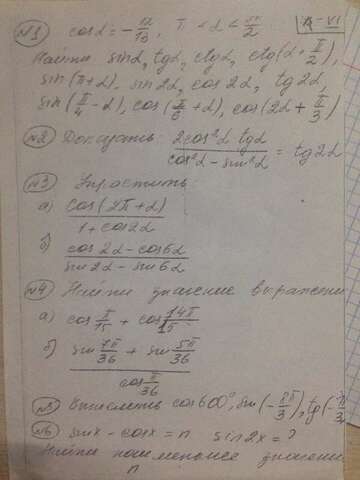 №1 cosα = -12/13, π < α < 3π/2
Найти sinα, tgα, ctgα, ctg(α + π/2),
sin(π+α), sin2α, cos2α, tg2α
sin(π/4 - α), cos(π/6 + α), cos(2α + π/3)
№2 Доказать: 2cos²α tgα / cos²α - sin²α = tg2α
№3 Упростить:
а) cos(2π+α) / 1 + cos2α
б) cos2α - cos6α / sin2α - sin6α
№4 Найти значение выражения
а) cos π/15 + cos 14π/15
б) sin 7π/36 + sin 5π/36 / cos π/36
№5 Вычислить cos600°, sin(-8π/3), tg(-
№6 sinx - cosx = n sin2x = ?
Найти наименьшее значение
n